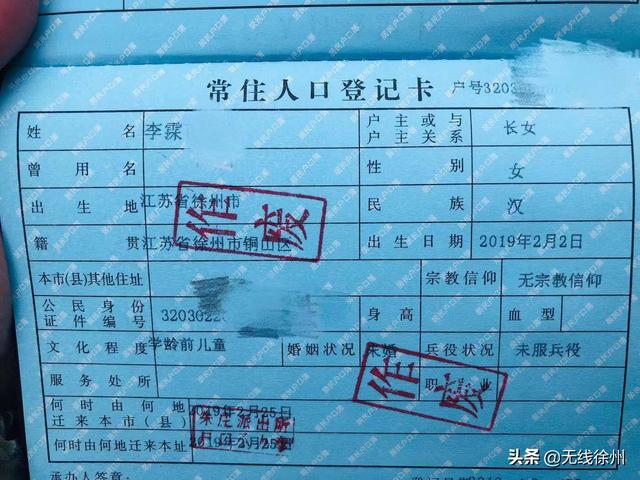 常住人口登记卡 户号3203
姓名 李霂 户主或与户主关系 长女
曾用名 性别 女
出生地 江苏省徐州市 民族 汉
籍贯 江苏省徐州市铜山区 出生日期 2019年2月2日
本市(县)其他住址 宗教信仰 无宗教信仰
公民身份证件编号 3203022 身高 血型
文化程度 学龄前儿童 婚姻状况 未婚 兵役状况 未服兵役
服务处所 职业
何时由何地迁来本市(县) 2019年2月25日
何时由何地迁来本址 2019年2月25日
承办人签章:
作废
作废
派出所
头条 @无线徐州